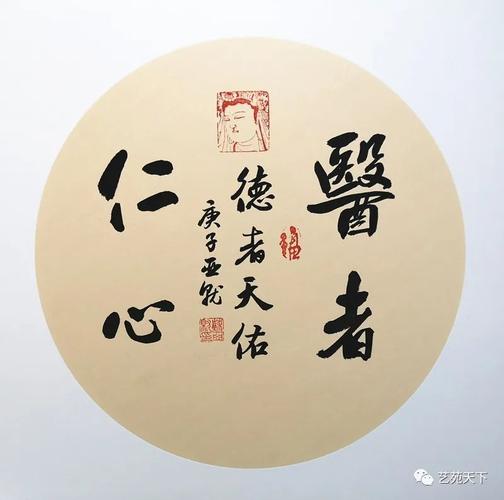 醫者
仁心
德者天佑
庚子亚就
艺苑天下